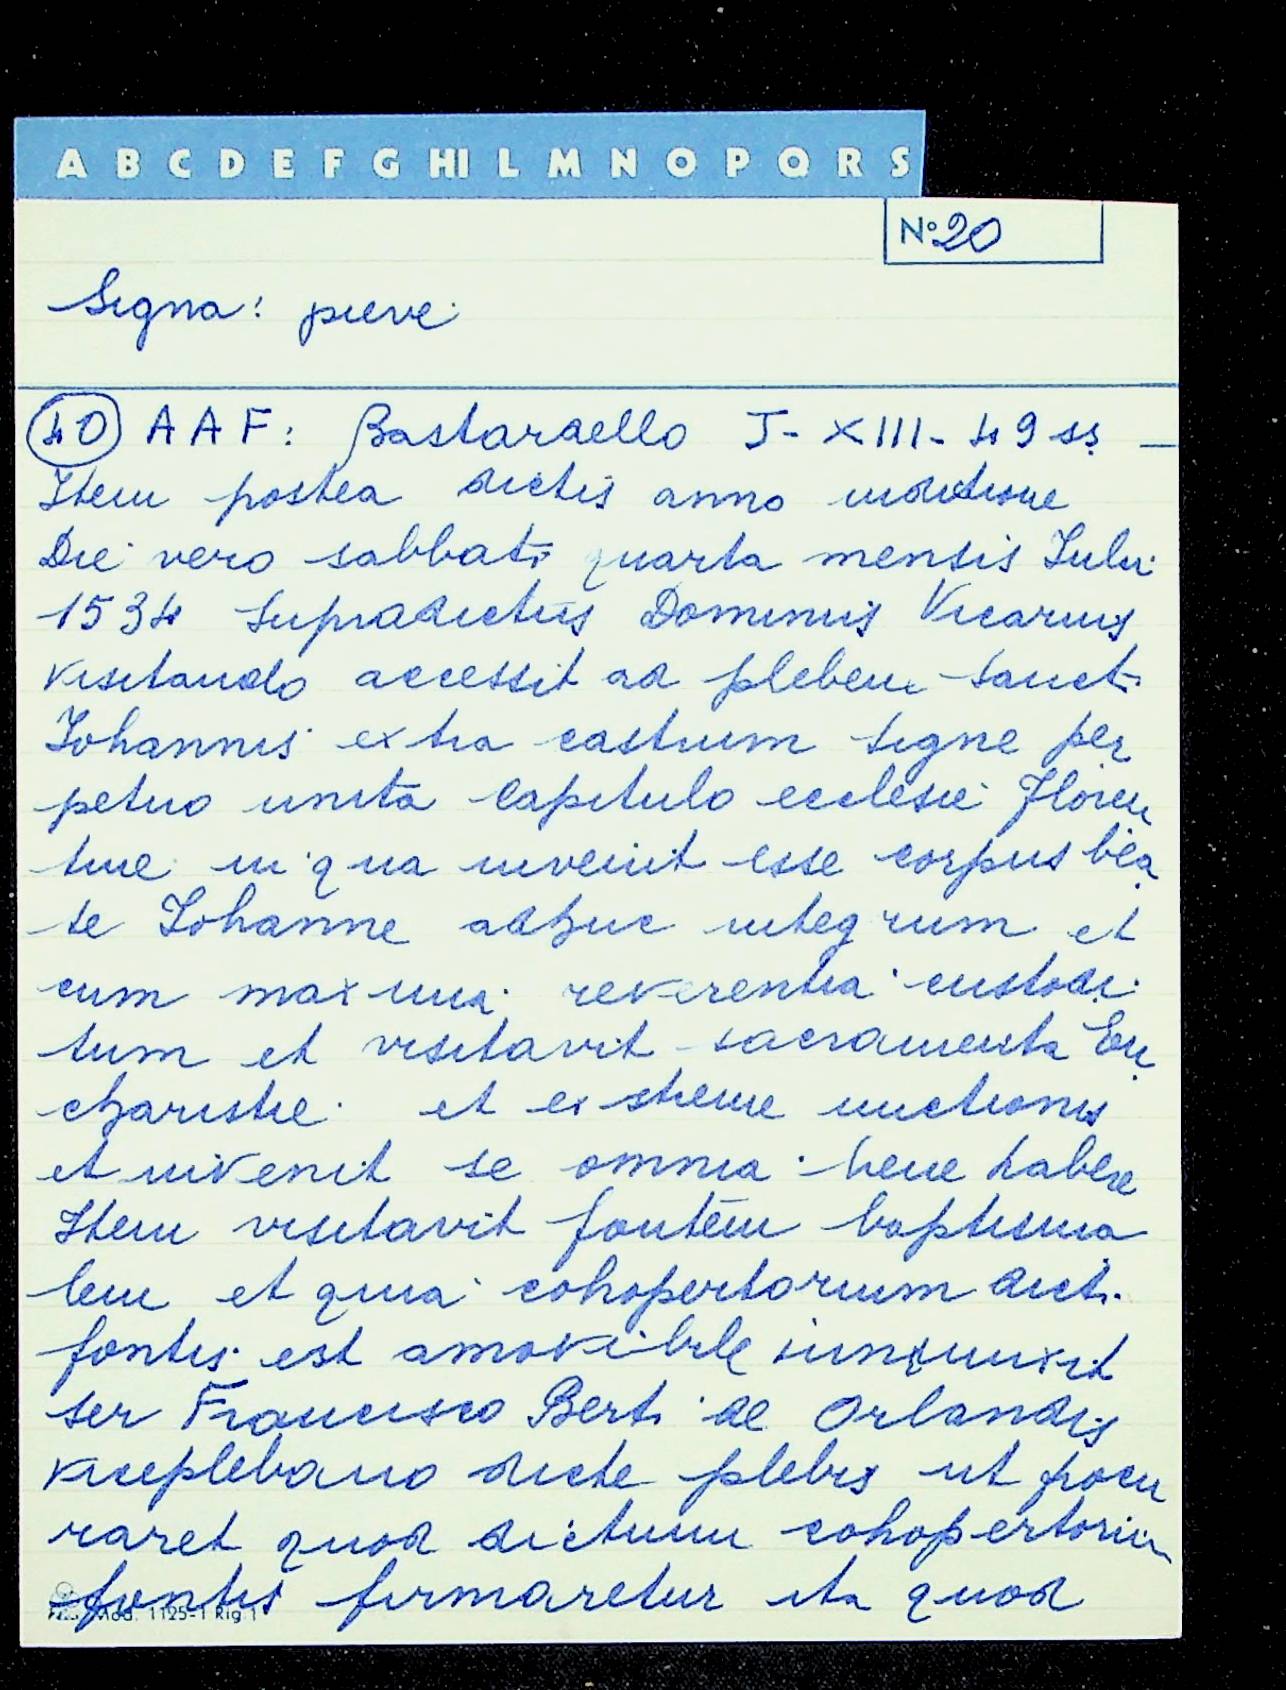 A B C D E F G HI L M N O P Q R S
N° 20
Signa: pieve
40 AAF: Bastardello I-XIII-49 ss. —
Item postea dictis anno indictione
Die vero sabbati quarta mensis Iulii
1534 Supradictus Dominus Vicarius
visitando accessit ad plebem Sancti
Iohannis extra castrum Signe per
petuo unita capitulo ecclesie Floren
tine in qua invenit esse corpus bea
te Iohanne adhuc integrum et
cum maxima reverentia custodi
tum et visitavit sacramenta Eu
charistie et extreme unctionis
et invenit se omnia bene habere
Item visitavit fontem baptisma
lem et quia cohopertorium dicti
fontis est amovibile iniunxit
ser Francisco Berti de Orlandis
viceplebano dicte plebis ut procu
raret quod dictum cohopertorium
fontis firmaretur ita quod
Mod. 1125-1 Rig. 1